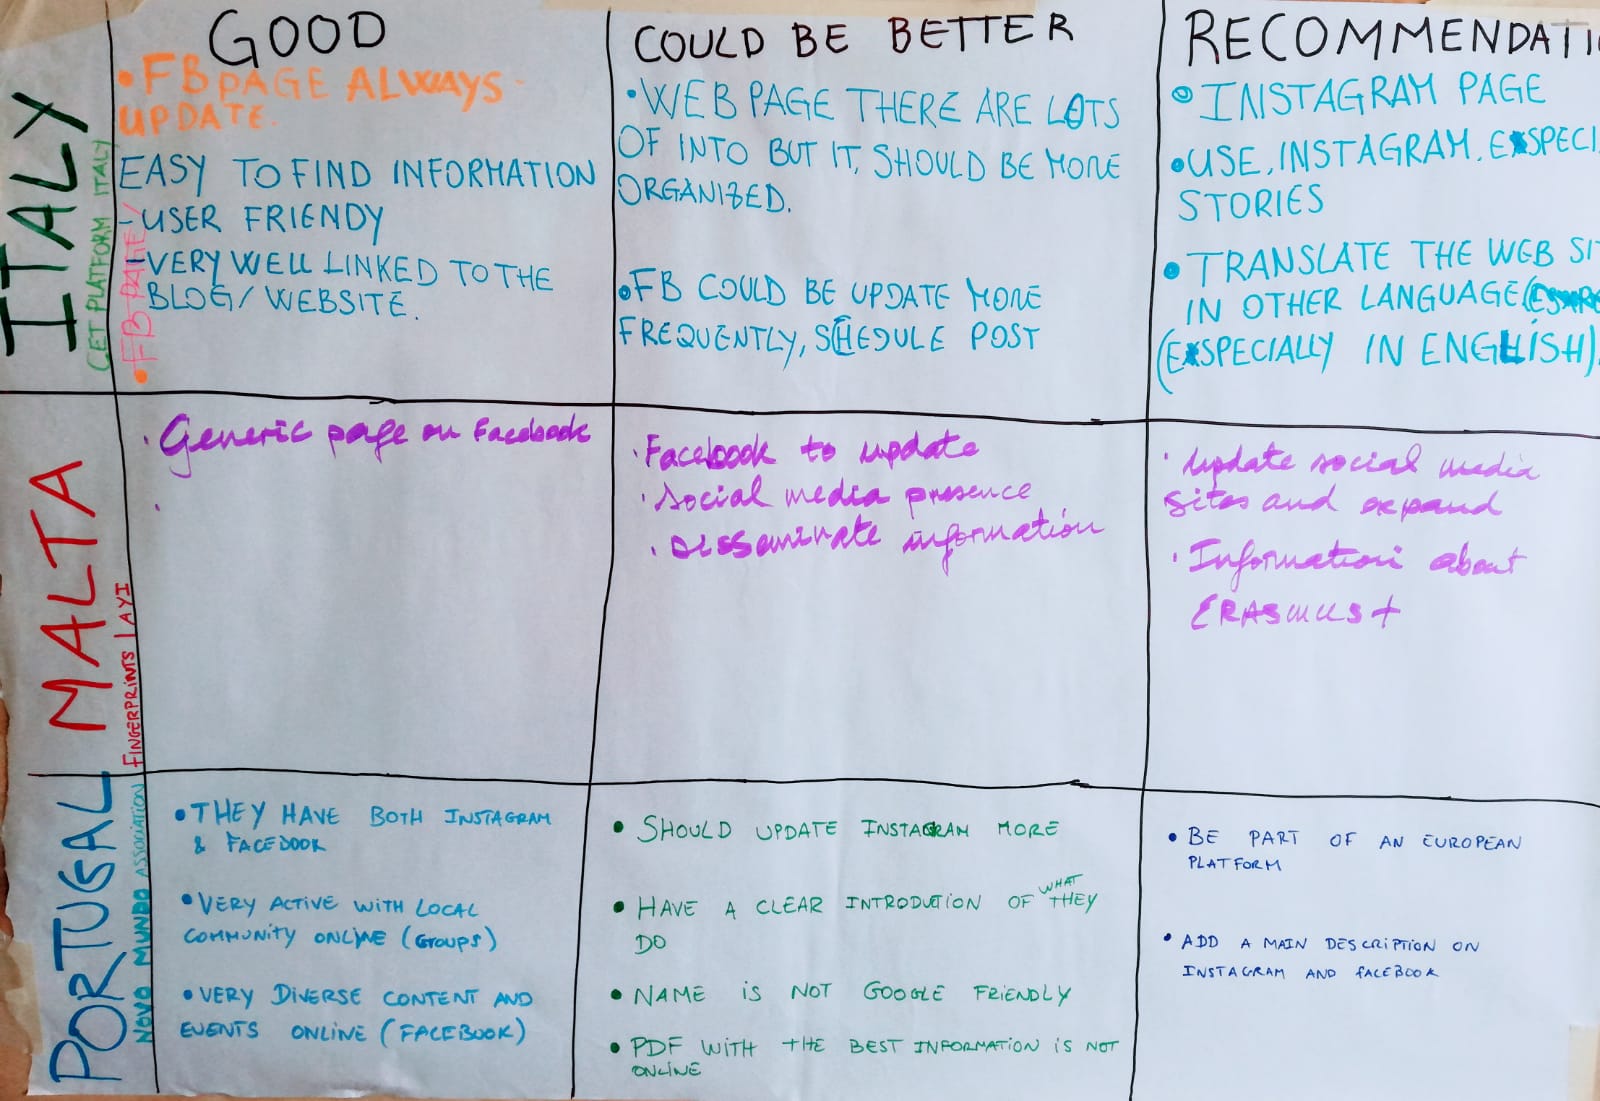 GOOD
COULD BE BETTER
RECOMMENDATI
ITALY
GET PLATFORM ITALY
• FB PAGE/
• FB PAGE ALWAYS
UPDATE.
EASY TO FIND INFORMATION
- USER FRIENDY
- VERY WELL LINKED TO THE
BLOG/WEBSITE.
• WEB PAGE THERE ARE LOTS
OF INTO BUT IT, SHOULD BE MORE
ORGANIZED.
• FB COULD BE UPDATE MORE
FREQUENTLY, SCHEDULE POST
• INSTAGRAM PAGE
• USE, INSTAGRAM, ESPECI
STORIES
• TRANSLATE THE WEB SI
IN OTHER LANGUAGE
(ESPECIALLY IN ENGLISH).
MALTA
FINGERPRINTS LAYI
· Generic page on Facebook
· Facebook to update
· Social media presence
· Disseminate information
· Update social media
sites and expand
· Information about
ERASMUS+
PORTUGAL
NOVO MUNDO ASSOCIATION
• THEY HAVE BOTH INSTAGRAM
& FACEBOOK
• VERY ACTIVE WITH LOCAL
COMMUNITY ONLINE (GROUPS)
• VERY DIVERSE CONTENT AND
EVENTS ONLINE (FACEBOOK)
• SHOULD UPDATE INSTAGRAM MORE
• HAVE A CLEAR INTRODUCTION OF WHAT THEY
DO
• NAME IS NOT GOOGLE FRIENDLY
• PDF WITH THE BEST INFORMATION IS NOT
ONLINE
• BE PART OF AN EUROPEAN
PLATFORM
• ADD A MAIN DESCRIPTION ON
INSTAGRAM AND FACEBOOK